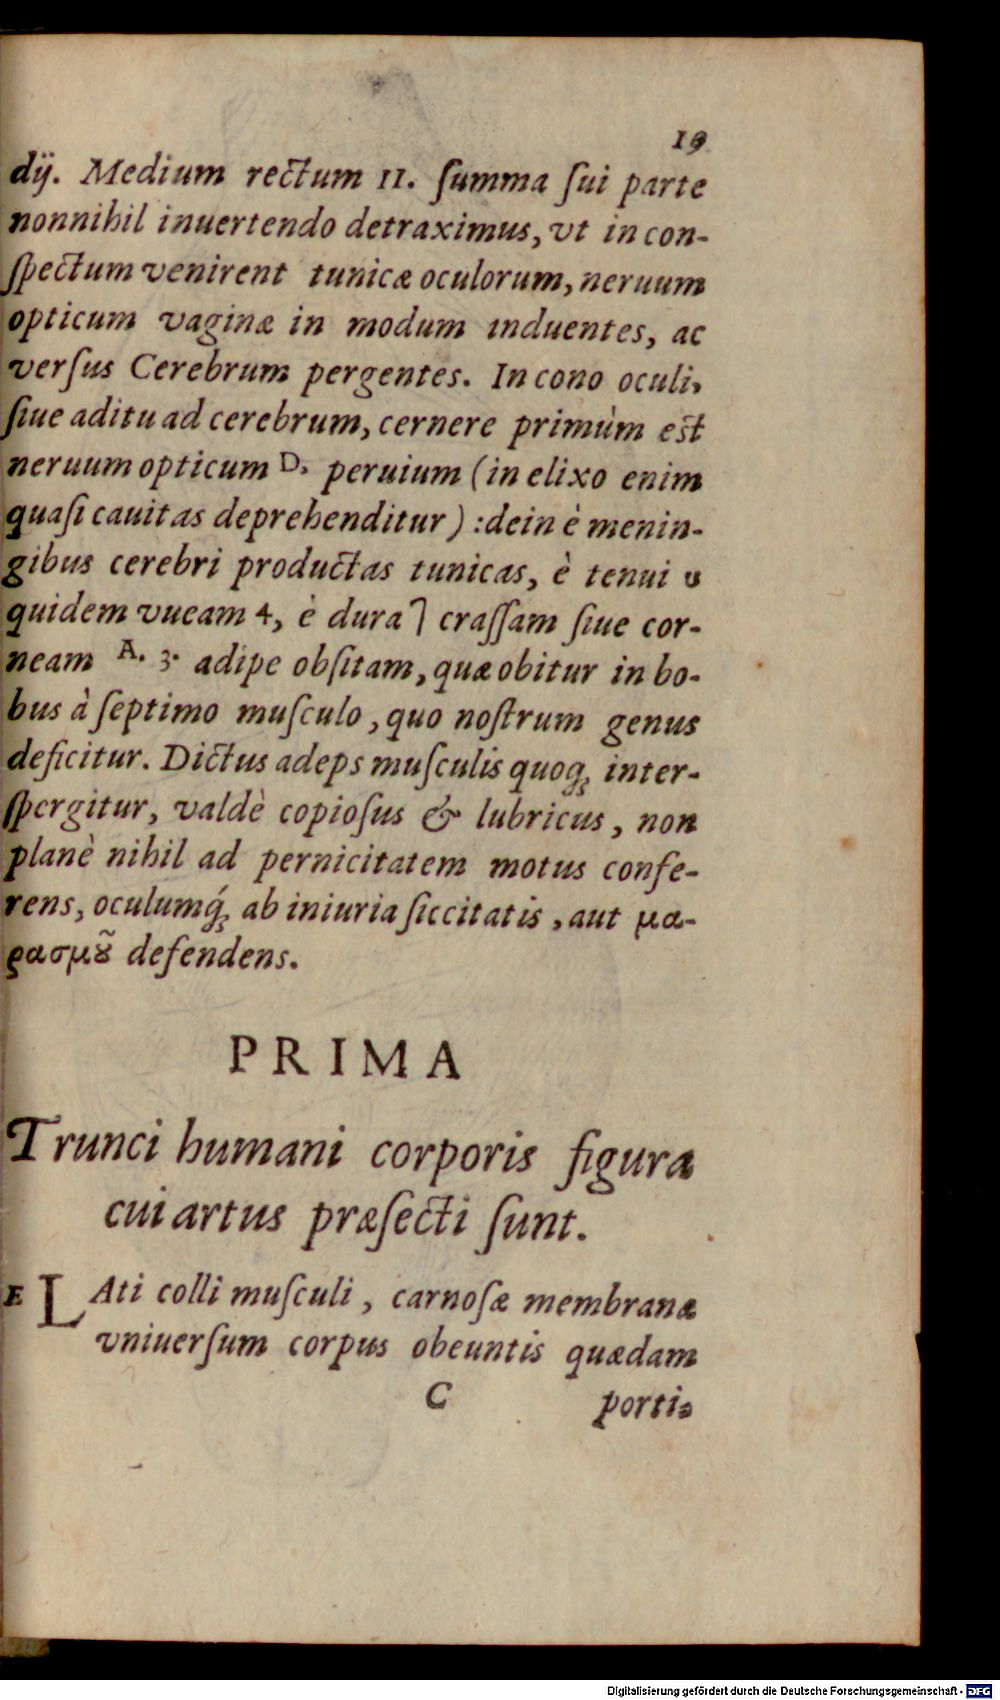 19
dij. Medium rectum 11. ſumma ſui parte
nonnihil inuertendo detraximus, vt in con-
ſpectum venirent tunicæ oculorum, neruum
opticum vaginæ in modum induentes, ac
verſus Cerebrum pergentes. In cono oculi,
ſiue aditu ad cerebrum, cernere primùm est
neruum opticum D, peruium (in elixo enim
quaſi cauitas deprehenditur) : dein è menin-
gibus cerebri productas tunicas, è tenui
quidem vueam 4, è dura ⁊ craſſam ſiue cor-
neam A. 3. adipe obſitam, quæ obitur in bo-
bus à ſeptimo muſculo, quo noſtrum genus
deficitur. Dictus adeps muſculis quoq; inter-
ſpergitur, valdè copioſus & lubricus, non
planè nihil ad pernicitatem motus confe-
rens, oculumq́; ab iniuria ſiccitatis, aut μα-
ρασμȣ͂ defendens.
PRIMA
Trunci humani corporis figura
cui artus præſecti ſunt.
E LAti colli muſculi, carnoſæ membranæ
vniuerſum corpus obeuntis quædam
C porti-
Digitalisierung gefördert durch die Deutsche Forschungsgemeinschaft - DFG